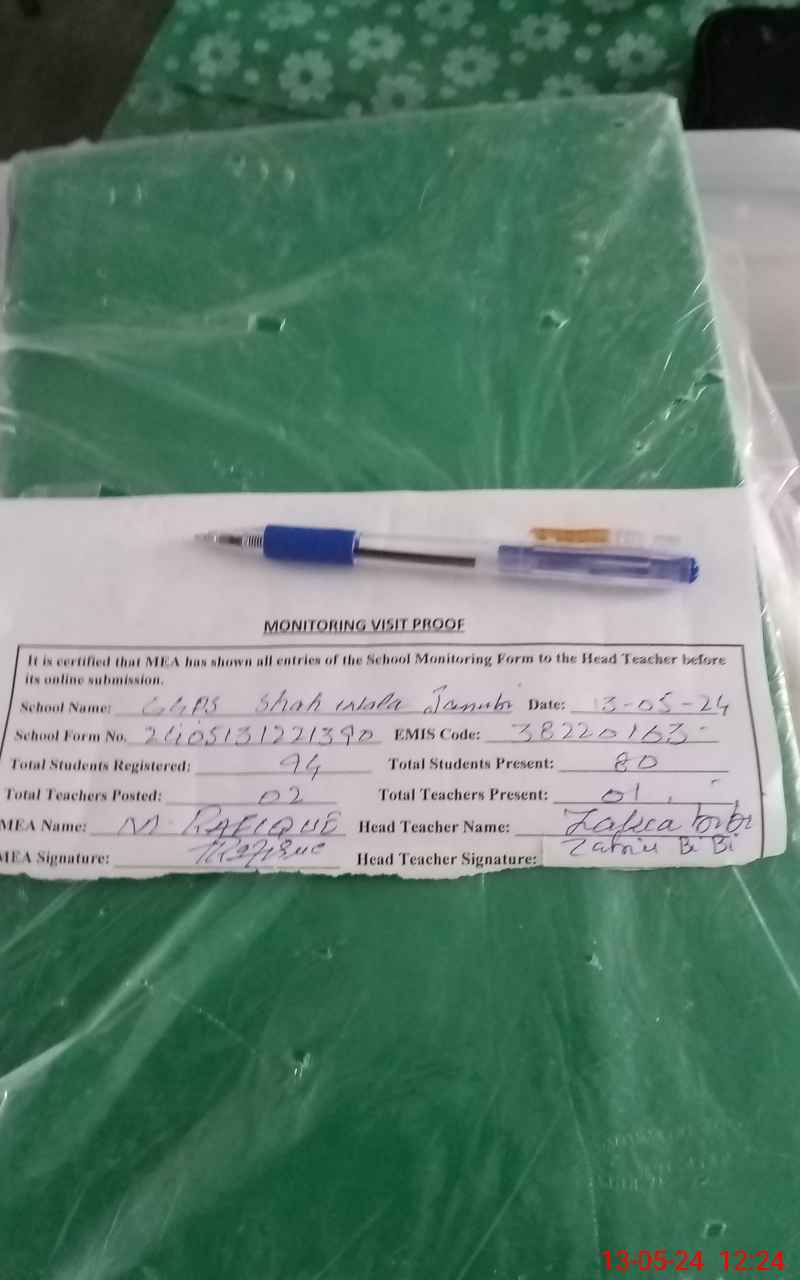 MONITORING VISIT PROOF
It is certified that MEA has shown all entries of the School Monitoring Form to the Head Teacher before
its online submission.
School Name: GGPS Shah wala Janubi Date: 13-05-24
School Form No. 2405131221390 EMIS Code: 38220163
Total Students Registered: 94 Total Students Present: 80
Total Teachers Posted: 02 Total Teachers Present: 01
MEA Name: M. RAFIQUE Head Teacher Name: bibi
MEA Signature: Head Teacher Signature: Bi Bi
13-05-24 12:24